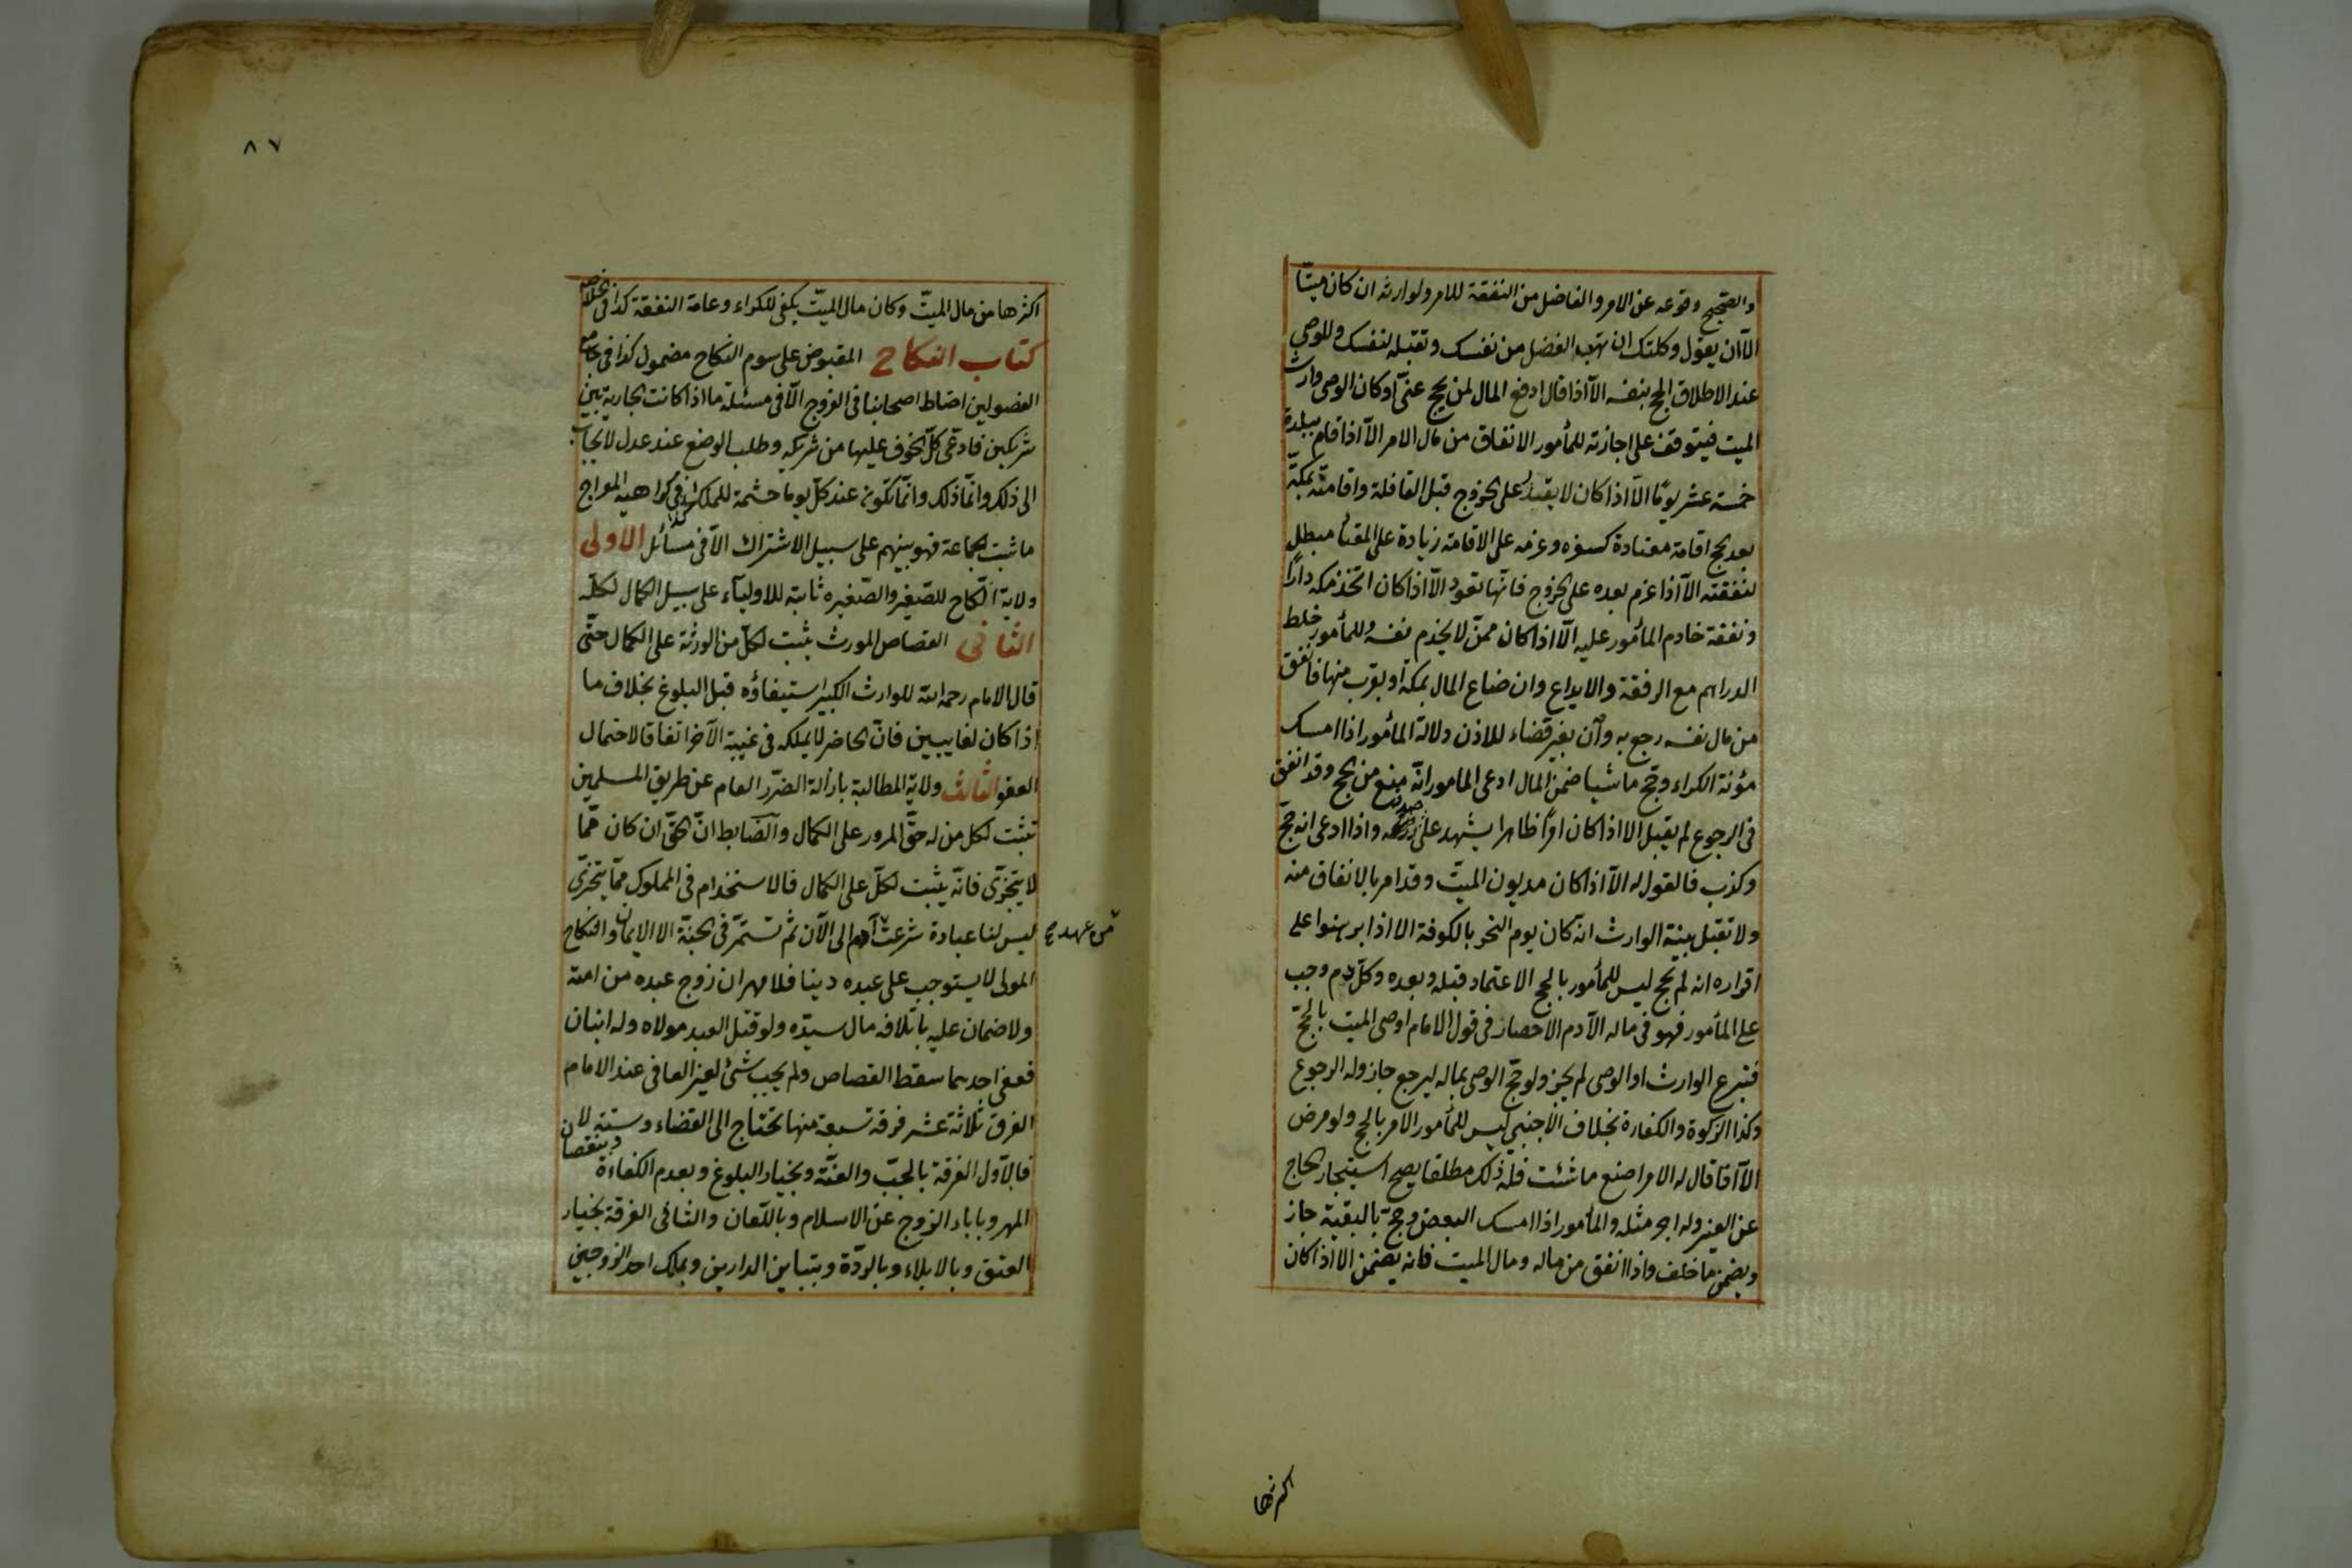 والصحيح وقوعه عن الامر والفاضل من النفقة للامر ولوارثه ان كان ميتّا
الّا ان يقول وكلتك ان تهب الفضل من نفسك وتقبله لنفسك وللوصي
عند الاطلاق الحج بنفسه الّا اذا قال ادفع المال لمن يحج عنّي او كان الوصي وارث
الميت فيتوقف على اجازته للمأمور الانفاق من مال الامر الّا اذا قام ببلدة
خمسة عشر يومًا الّا اذا كان لا يقدر على الخروج قبل القافلة واقامته بمكّة
بعد الحج اقامة معتادة كسفره وعزمه على الاقامة زيادة على المعتاد مبطل
لنفقته الّا اذا عزم بعده على الخروج فانّها تعود الّا اذا كان اتخذ مكه دارًا
ونفقة خادم المأمور عليه الّا اذا كان ممنّ لا يخدم نفسه وللمأمور خلط
الدراهم مع الرفقة والايداع وان ضاع المال بمكة او بقرب منها فانفق
من مال نفسه رجع به وان بغير قضاء للاذن ولالة المأمور اذا امسك
مؤنة الكراء وحج ماشيا ضمن المال ادعى المامور انّه منع من الحج وقد انفق
فى الرجوع لم يقبل الا اذا كان امرًا ظاهرا يشهد على صدقه واذا ادعى انه حج
وكذب فالقول له الّا اذا كان مديون الميتّ وقد امر بالانفاق منه
ولا تقبل بينة الوارث انّه كان يوم النحر بالكوفة الا اذا برهنوا على
اقراره انه لم يحج ليس للمأمور بالحج الاعتماد قبله وبعده وكلّ دم وجب
على المأمور فهو فى ماله الّا دم الاحصار فى قول الامام اوصى الميت بالحجّ
فتبرع الوارث او الوصى لم يجز ولو حج الوصى بماله ليرجع جاز وله الرجوع
وكذا الزكوة والكفارة بخلاف الاجنبي ليس للمأمور الامر بالحج ولو مرض
الّا اذا قال له الامر اصنع ما شئت فله ذلك مطلقا يصح استيجار الحاج
عن الغير وله اجر مثله والمأمور اذا امسك البعض وحج بالبقية جاز
ويضمن ما خلف واذا انفق من ماله ومال الميت فانه يضمن الا اذا كان
اكثرها
٨٧
اكثرها من مال الميتّ وكان مال الميتّ يكفى للكراء وعامة النفقة كذا فى الخلاصه
كتاب النكاح المقبوض على سوم النكاح مضمون كذا فى جامع
الفصولين احتاط اصحابنا فى الفروج الّا فى مسئلة ما اذا كانت الجارية بين
شريكين فادعى كلّ الخوف عليها من شريكه وطلب الوضع عند عدل لا يجاب
الى ذلك وانمّا ذلك وانّما تكون عند كلّ يوما حشمة للملك كذا فى كراهية المعراج
ما ثبت لجماعة فهو بينهم على سبيل الاشتراك الّا فى مسائل الاولى
ولاية النّكاح للصّغير والصّغيره ثابتة للاوليآء على سبيل الكمال لكلّ
الثانى القصاص المورث يثبت لكلّ من الورثة على الكمال حتّى
قال الامام رحمه الله للوارث الكبير استيفاؤه قبل البلوغ بخلاف ما
اذا كان لغايبين فانّ الحاضر لا يملكه فى غيبة الآخر اتفاقا لاحتمال
العفو الثالث ولاية المطالبة بازالة الضرّر العام عن طريق المسلمين
تثبت لكل من له حقّ المرور على الكمال والضّابط انّ الحقّ ان كان ممّا
لا يتجزّى فانّه يثبت لكلّ على الكمال فالاستخدام فى المملوك ممّا يتجزّى
ليس لنا عبادة شرعت آدم الى الآن ثمّ تستمرّ فى الجنّة الا الايمان والنكاح
من عهد صح
المولى لا يستوجب على عبده دينا فلا مهر ان زوج عبده من امته
ولا ضمان عليه باتلافه مال سيدّه ولو قتل العبد مولاه وله ابنان
فعفى احدهما سقط القصاص ولم يجب شئ لغير العافى عند الامام
الفرق ثلاثة عشر فرقة سبعة منها تحتاج الى القضاء وستة لا
فالاوّل الفرقة بالجبّ والعنّة وبخيار البلوغ وبعدم الكفاءة وبنقصان
المهر وباباء الزوج عن الاسلام وباللّعان والثانى الفرقة بخيار
العتق وبالايلاء وبالردّة وبتباين الدارين وبملك احد الزوجين